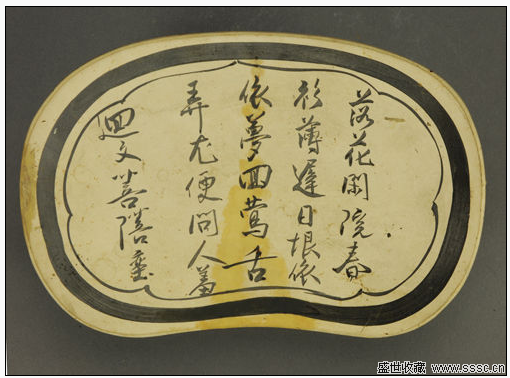 落花閑院春
衫薄遲日恨依
依夢回鶯舌
弄尤便問人羞
迴文菩薩蛮
盛世收藏 www.sssc.cn